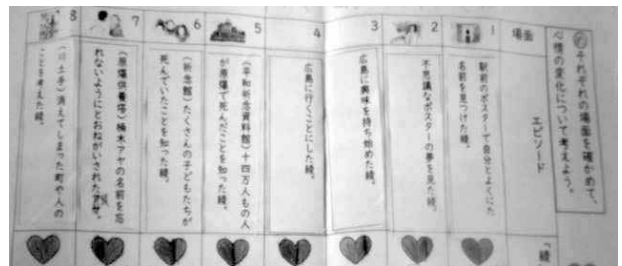 それぞれの場面を確かめて、
心情の変化について考えよう。
場面
エピソード
「綾
1
駅前のポスターで自分とよくにた
名前を見つけた綾。
2
不思議なポスターの夢を見た綾。
3
広島に興味を持ち始めた綾。
4
広島に行くことにした綾。
5
(平和祈念資料館)十四万人もの人
が原爆で死んだことを知った綾。
6
(祈念館)たくさんの子どもたちが
死んでいたことを知った綾。
7
(原爆供養塔)楠木アヤの名前を忘
れないようにとおねがいされた
8
(川土手)消えてしまった町や人の
ことを考えた綾。